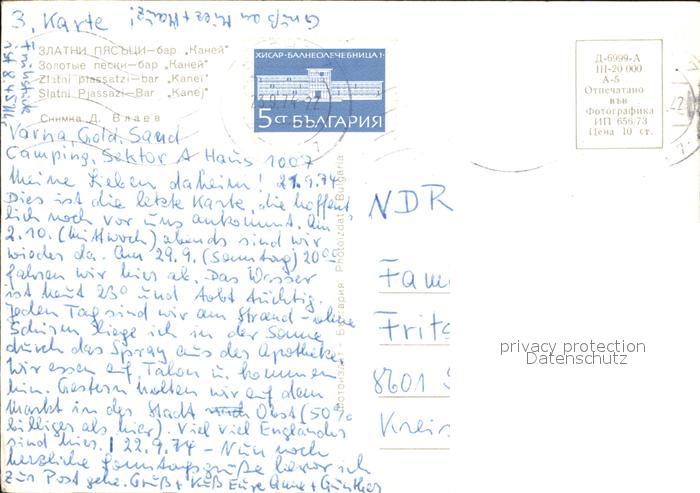 3. Karte
Gruß an Miez + Hansi!
Frühstück
ist 8.45 Uhr
ЗЛАТНИ ПЯСЪЦИ–бар „Каней"
Золотые пески–бар „Каней"
Zlatni piassatzi–Bar „Kaneï"
Slatni Pjassazi–Bar „Kanej"
Снимка Д. Влаев
ХИСАР-БАЛНЕОЛЕЧЕБНИЦА 1
5 СТ БЪЛГАРИЯ
Д-6999-А
III-20 000
А-5
Отпечатано
във
Фотографика
ИП 656/73
Цена 10 ст.
Varna, Gold. Sand
Camping, Sektor A Haus 1007
Meine Lieben daheim! 21.9.74
Dies ist die letzte Karte, die hoffent
lich noch vor uns ankommt. Am
2.10. (Mittwoch) abends sind wir
wieder da. Am 29.9. (Sonntag) 20⁰⁰
fahren wir hier ab. Das Wasser
ist heut 23° und tobt tüchtig.
Jeden Tag sind wir am Strand – ohne
Schirm liege ich in der Sonne
durch das Spray aus der Apotheke
Wir essen auf Talon u. kommen
hin. Gestern holten wir auf dem
Markt in der Stadt Obst (50%
billiger als hier). Viel viel Engländer
sind hier. | 22.9.74 – Nun noch
herzliche Sonntagsgrüße bevor ich
zur Post gehe. Gruß + Kuß Eure Anne + Günther
Фотоиздат България Photoizdat Bulgaria
NDR
Fam
Fritz
8601
Kreis
privacy protection
Datenschutz